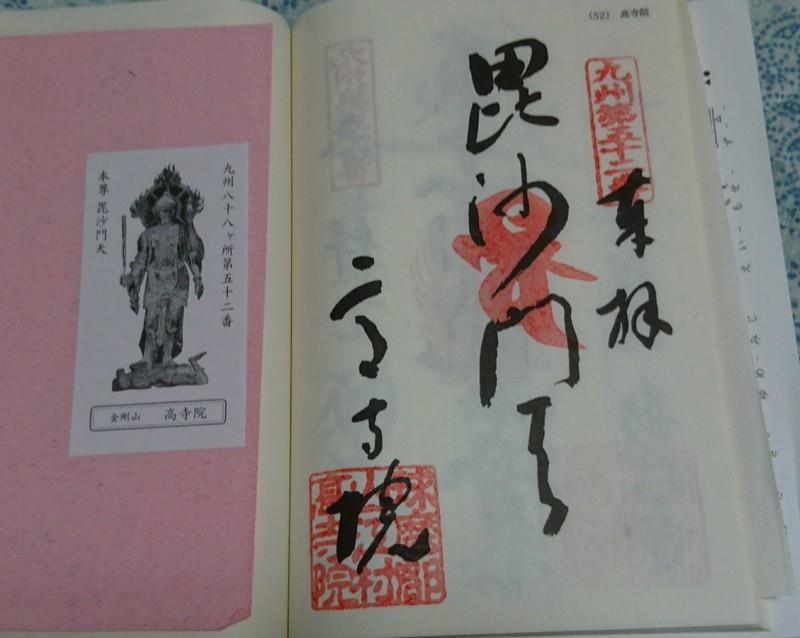 (52) 高寺院
九州第五十二番
奉拝
毘沙門天
高寺院
球磨郡
山江村
高寺院
九州八十八ヶ所第五十二番
本尊毘沙門天
金剛山 高寺院